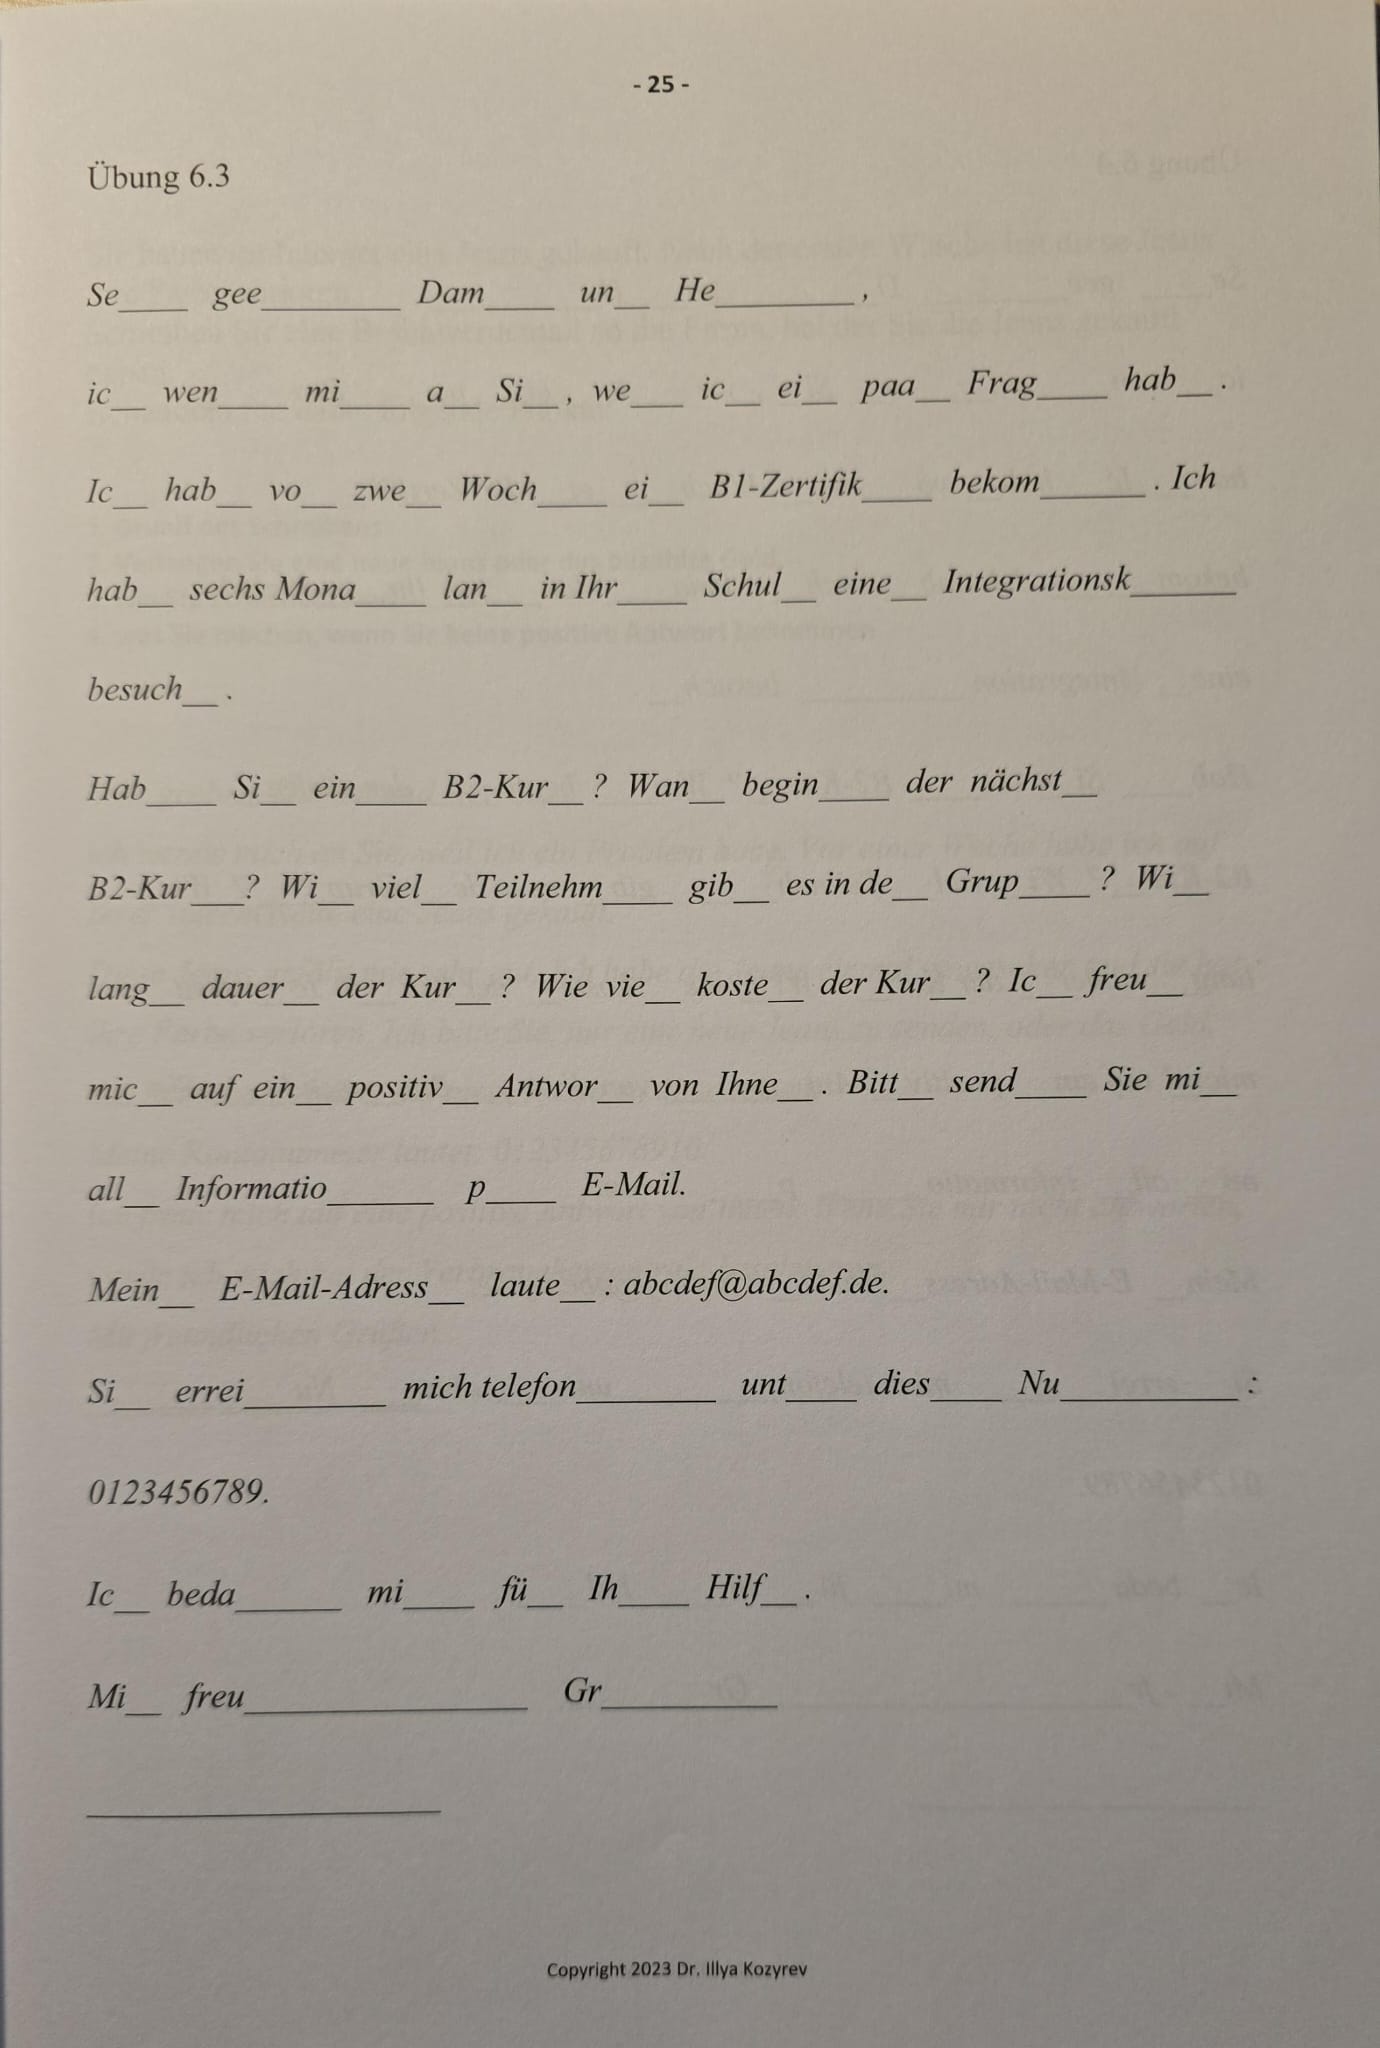 - 25 -
Übung 6.3
Se____ gee________ Dam____ un__ He________,
ic__ wen____ mi____ a__ Si__, we___ ic__ ei__ paa__ Frag____ hab__.
Ic__ hab__ vo__ zwe__ Woch____ ei__ B1-Zertifik____ bekom______. Ich
hab__ sechs Mona____ lan__ in Ihr____ Schul__ eine__ Integrationsk______
besuch__.
Hab____ Si__ ein____ B2-Kur__? Wan__ begin____ der nächst__
B2-Kur___? Wi__ viel__ Teilnehm____ gib__ es in de__ Grup____? Wi__
lang__ dauer__ der Kur__? Wie vie__ koste__ der Kur__? Ic__ freu__
mic__ auf ein__ positiv__ Antwor__ von Ihne__. Bitt__ send____ Sie mi__
all__ Informatio______ p____ E-Mail.
Mein__ E-Mail-Adress__ laute__: abcdef@abcdef.de.
Si__ errei________ mich telefon________ unt____ dies____ Nu__________:
0123456789.
Ic__ beda______ mi____ fü__ Ih____ Hilf__.
Mi__ freu________________ Gr__________
____________________
Copyright 2023 Dr. Illya Kozyrev